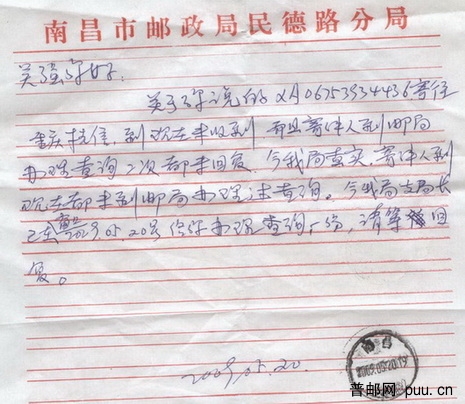 南昌市邮政局民德路分局
关强你好:
关于你说的XA06753934436寄往
重庆挂信,到现在未收到 却且寄件人到邮局
办理查询二次都未回复。今我局查实,寄件人到
现在都未到邮局办理过查询。今我局支局长
已在2009.05.20号给你办理查询1份,请等回
复。
2009.05.20.
南昌
2009.05.20.19
普邮网 puu.cn